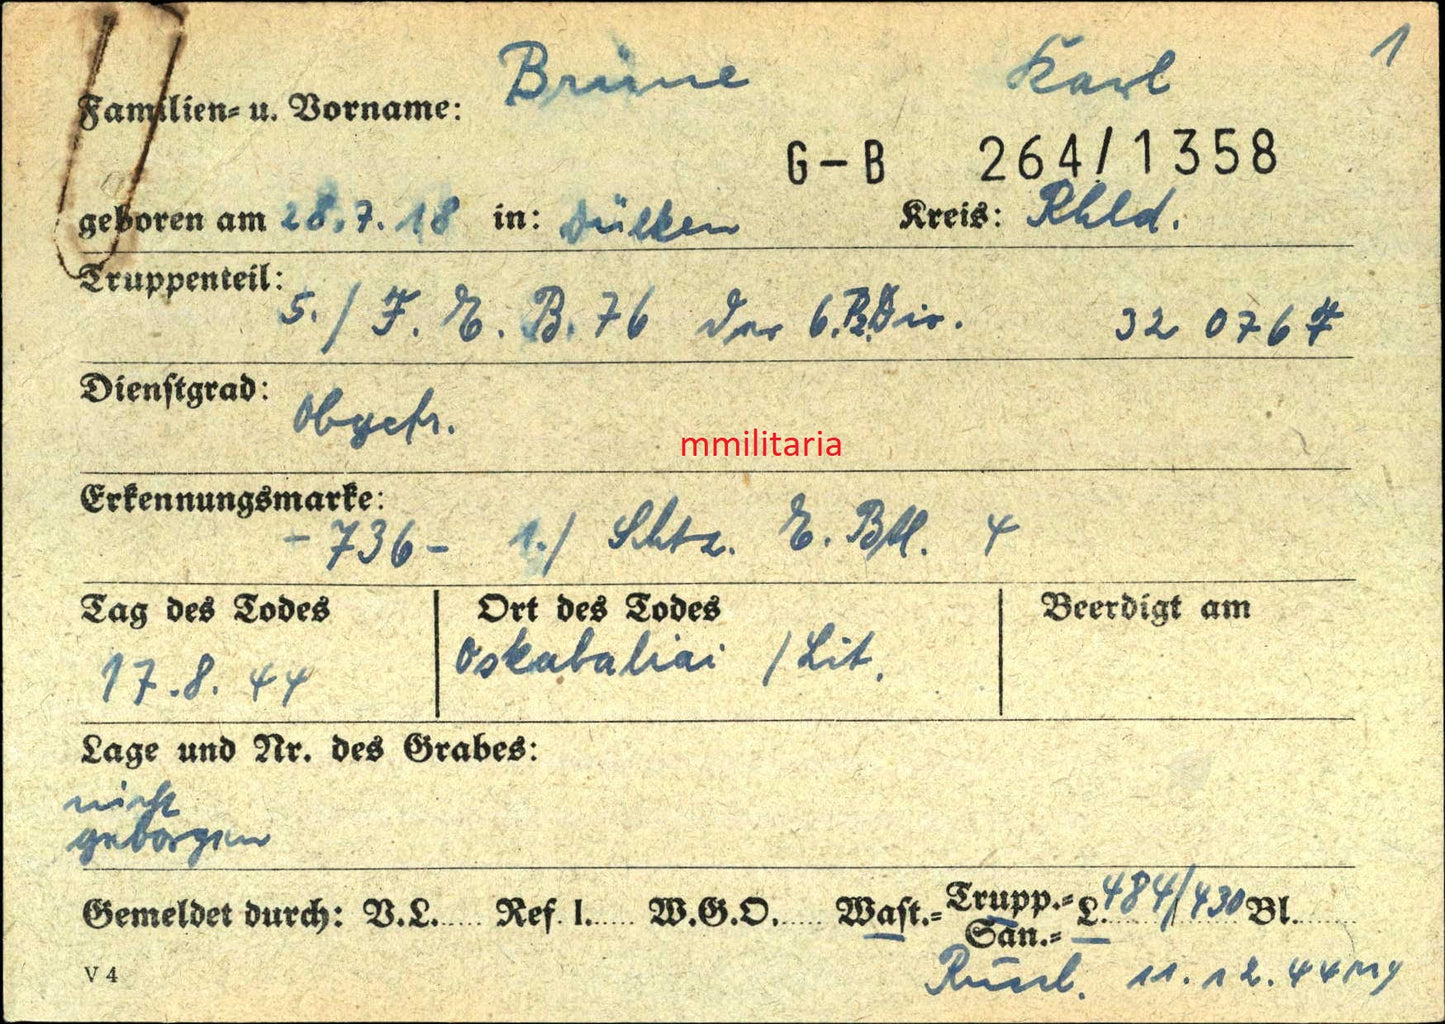 Brüne Karl 1
Familien- u. Vorname:
G-B 264/1358
geboren am 28.7.18 in: Dülken Kreis: Rhld.
Truppenteil:
5./ F. E. B. 76 der 6.Pz.Div. 32 076 F
Dienstgrad:
Obgefr.
mmilitaria
Erkennungsmarke:
-736- 1./ Schtz. E. Btl. 4
Tag des Todes Ort des Todes Beerdigt am
17.8.44 Oskabaliai /Lit.
Lage und Nr. des Grabes:
nicht
geborgen
Gemeldet durch: V.L..... Ref. I..... W.G.O..... Wast.= Trupp.= L. 484/430 Bl.
San.=
V 4 11.12.44